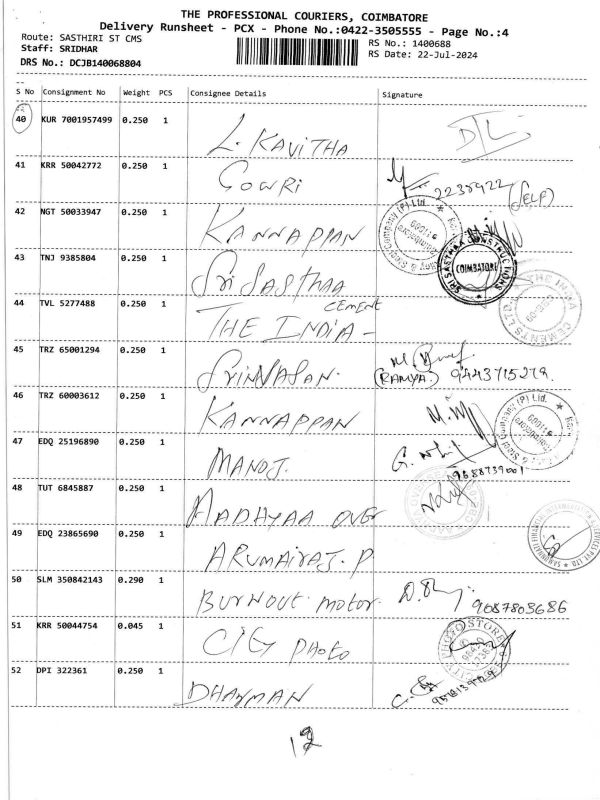 THE PROFESSIONAL COURIERS, COIMBATORE
Delivery Runsheet - PCX - Phone No.:0422-3505555 - Page No.:4
Route: SASTHIRI ST CMS
RS No.: 1400688
Staff: SRIDHAR
RS Date: 22-Jul-2024
DRS No.: DCJB140068804
S No Consignment No Weight PCS Consignee Details Signature
40 KUR 7001957499 0.250 1 L. KAVITHA
41 KRR 50042772 0.250 1 GOWRI 2238922 (SELF)
42 NGT 50033947 0.250 1 KANNAPPAN
43 TNJ 9385804 0.250 1 Sri SASTHAA
SRI SASTHAA CONSTRUCTIONS
COIMBATORE
44 TVL 5277488 0.250 1 THE INDIA - CEMENT
45 TRZ 65001294 0.250 1 SRINIVASAN. (RAMYA.) 9443715279.
46 TRZ 60003612 0.250 1 KANNAPPAN
47 EDQ 25196890 0.250 1 MANOJ. 9688739001
48 TUT 6845887 0.250 1 AADHYAA OVER
49 EDQ 23865690 0.250 1 ARUMAIRAJ. P
50 SLM 350842143 0.290 1 BURNOUT motor. 9087803686
51 KRR 50044754 0.045 1 CITY PHOTO
PHOTO STORE
52 DPI 322361 0.250 1 DHAYMAN